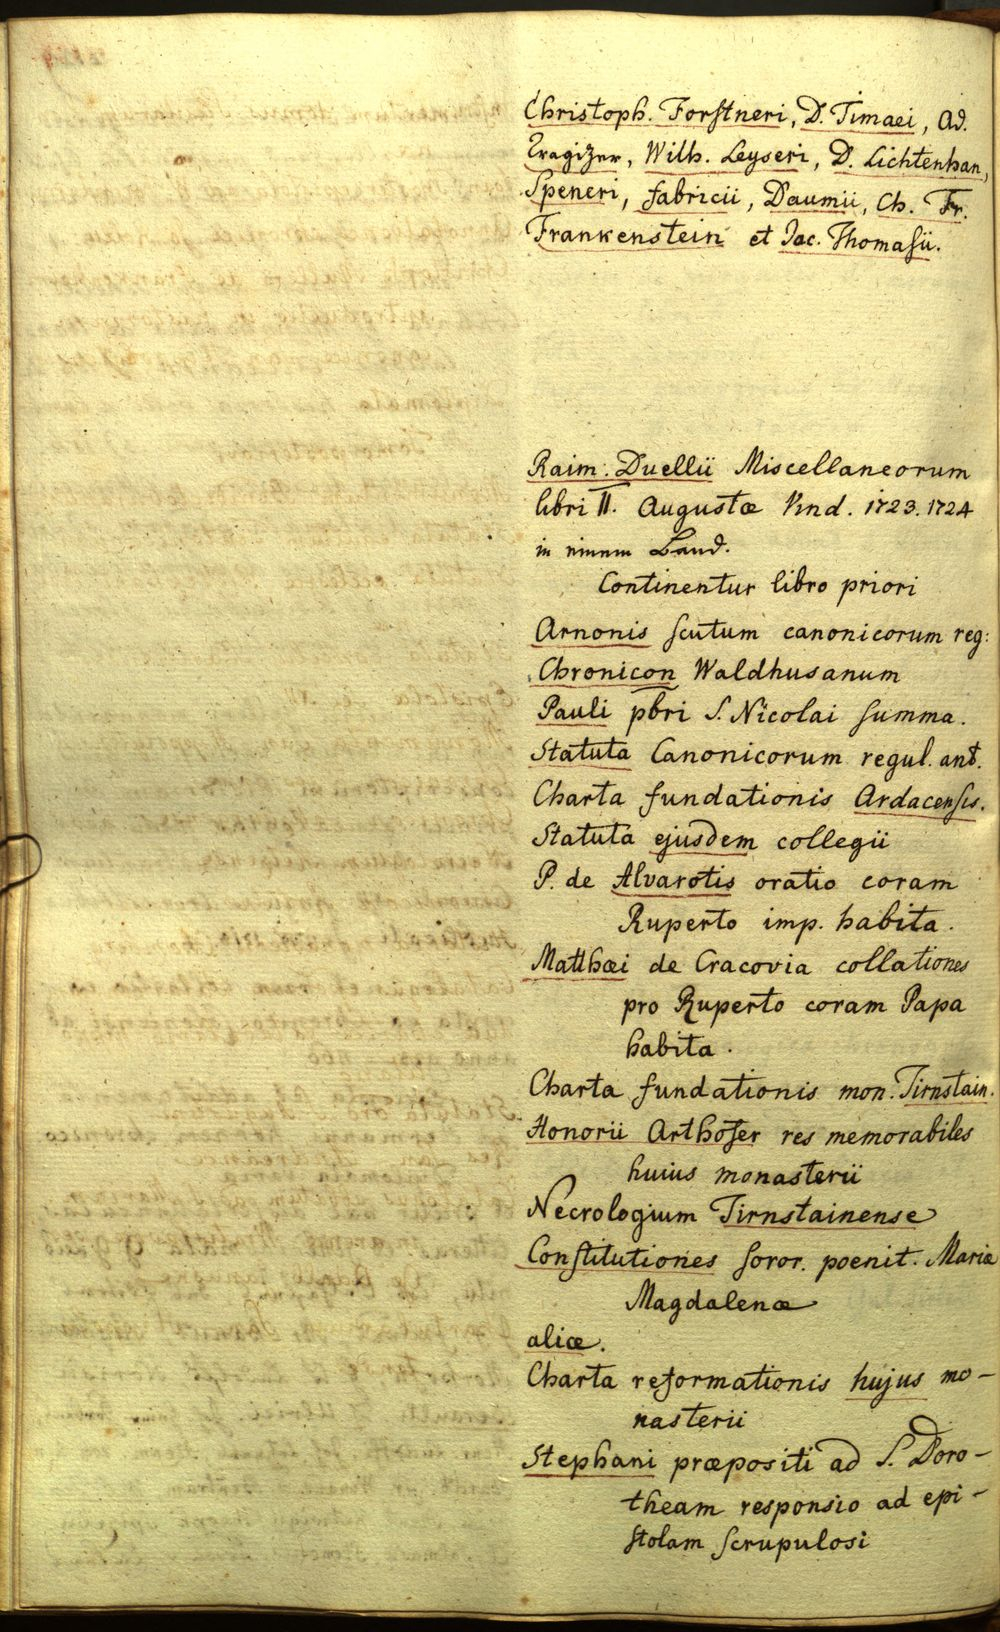 Christoph. Forstneri, D. Timaei, Ad.
Tragizer, Wilh. Leyseri, D. Lichtenhan,
Speneri, Fabricii, Daumii, Ch. Fr.
Frankenstein et Jac. Thomasii.
Raim. Duellii Miscellaneorum
libri II. Augustæ Vind. 1723. 1724
in einem Band.
Continentur libro priori
Arnonis scutum canonicorum reg:
Chronicon Waldhusanum
Pauli pbri S. Nicolai summa.
Statuta Canonicorum regul. ant.
Charta fundationis Ardacensis.
Statuta ejusdem collegii
P. de Alvarotis oratio coram
Ruperto imp. habita.
Matthæi de Cracovia collationes
pro Ruperto coram Papa
habita.
Charta fundationis mon. Tirnstain.
Honorii Arthofer res memorabiles
huius monasterii
Necrologium Tirnstainense
Constitutiones soror. poenit. Mariæ
Magdalenæ
aliæ.
Charta reformationis hujus mo-
nasterii
Stephani præpositi ad S. Doro-
theam responsio ad epi-
stolam scrupulosi